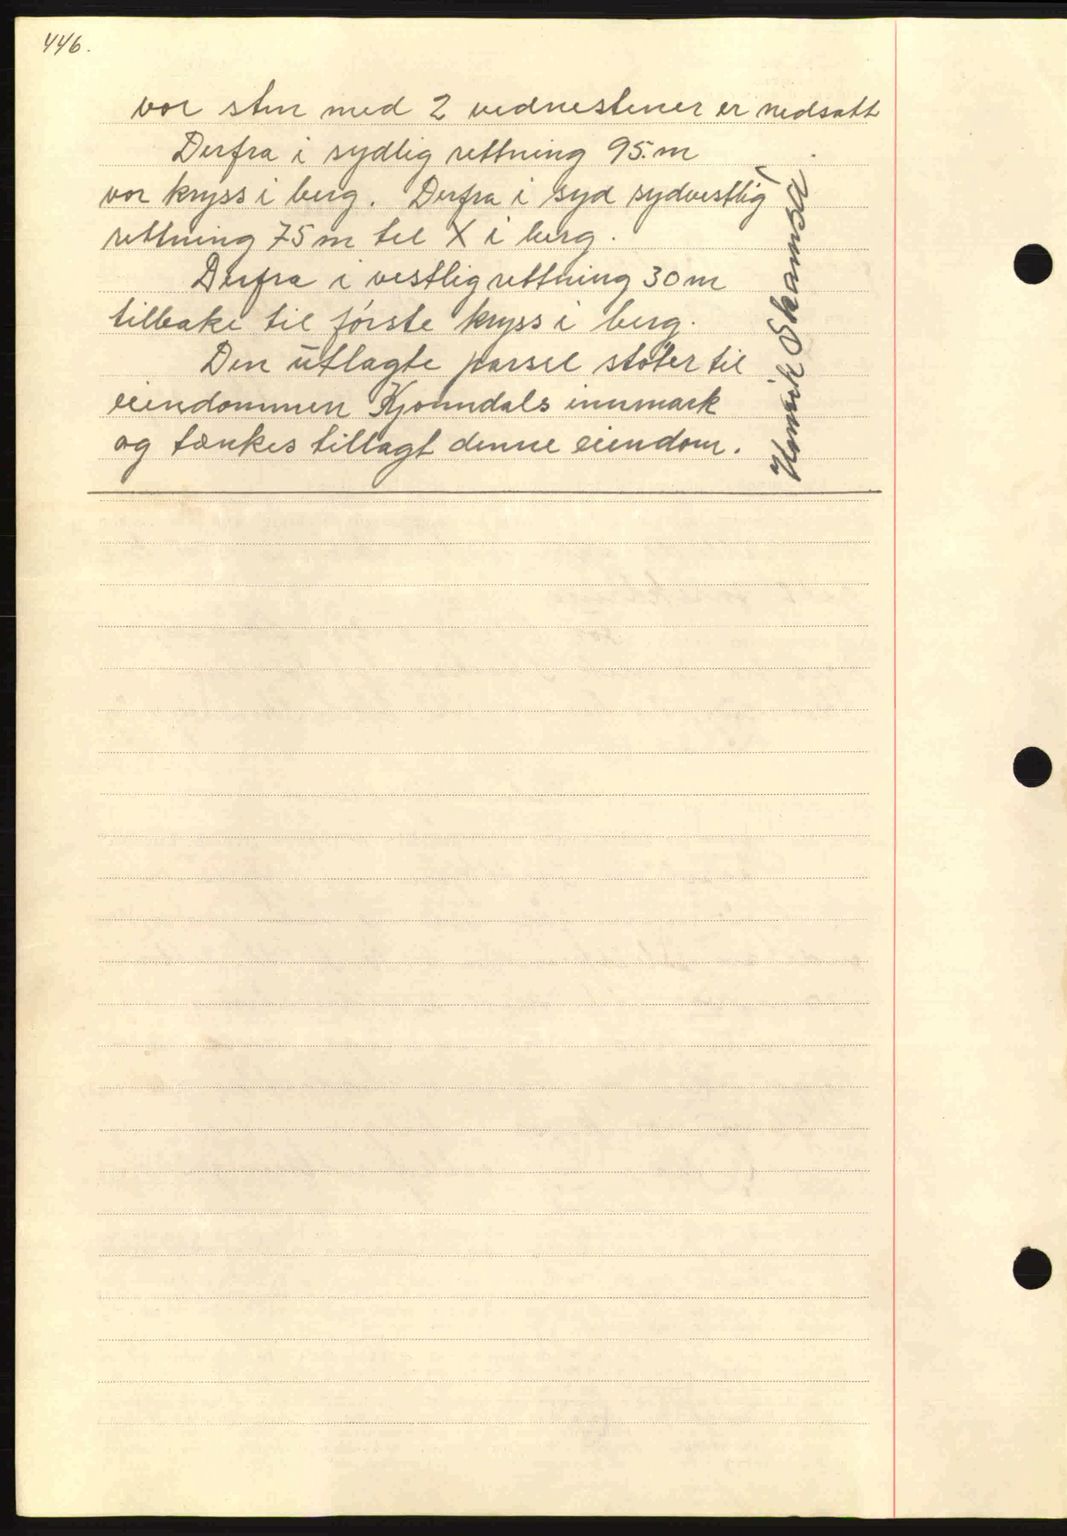 446.
vor sten med 2 vidnestener er nedsatt
Derfra i sydlig rettning 95.m
vor kryss i berg. Derfra i syd sydvestlig
rettning 75 m til X i berg.
Derfra i vestlig rettning 30 m
tilbake til første kryss i berg.
Den utlagte parsel støter til
eiendommen Kjonndals innmark
og tænkes tillagt denne eiendom.
Henrik Skamsø.